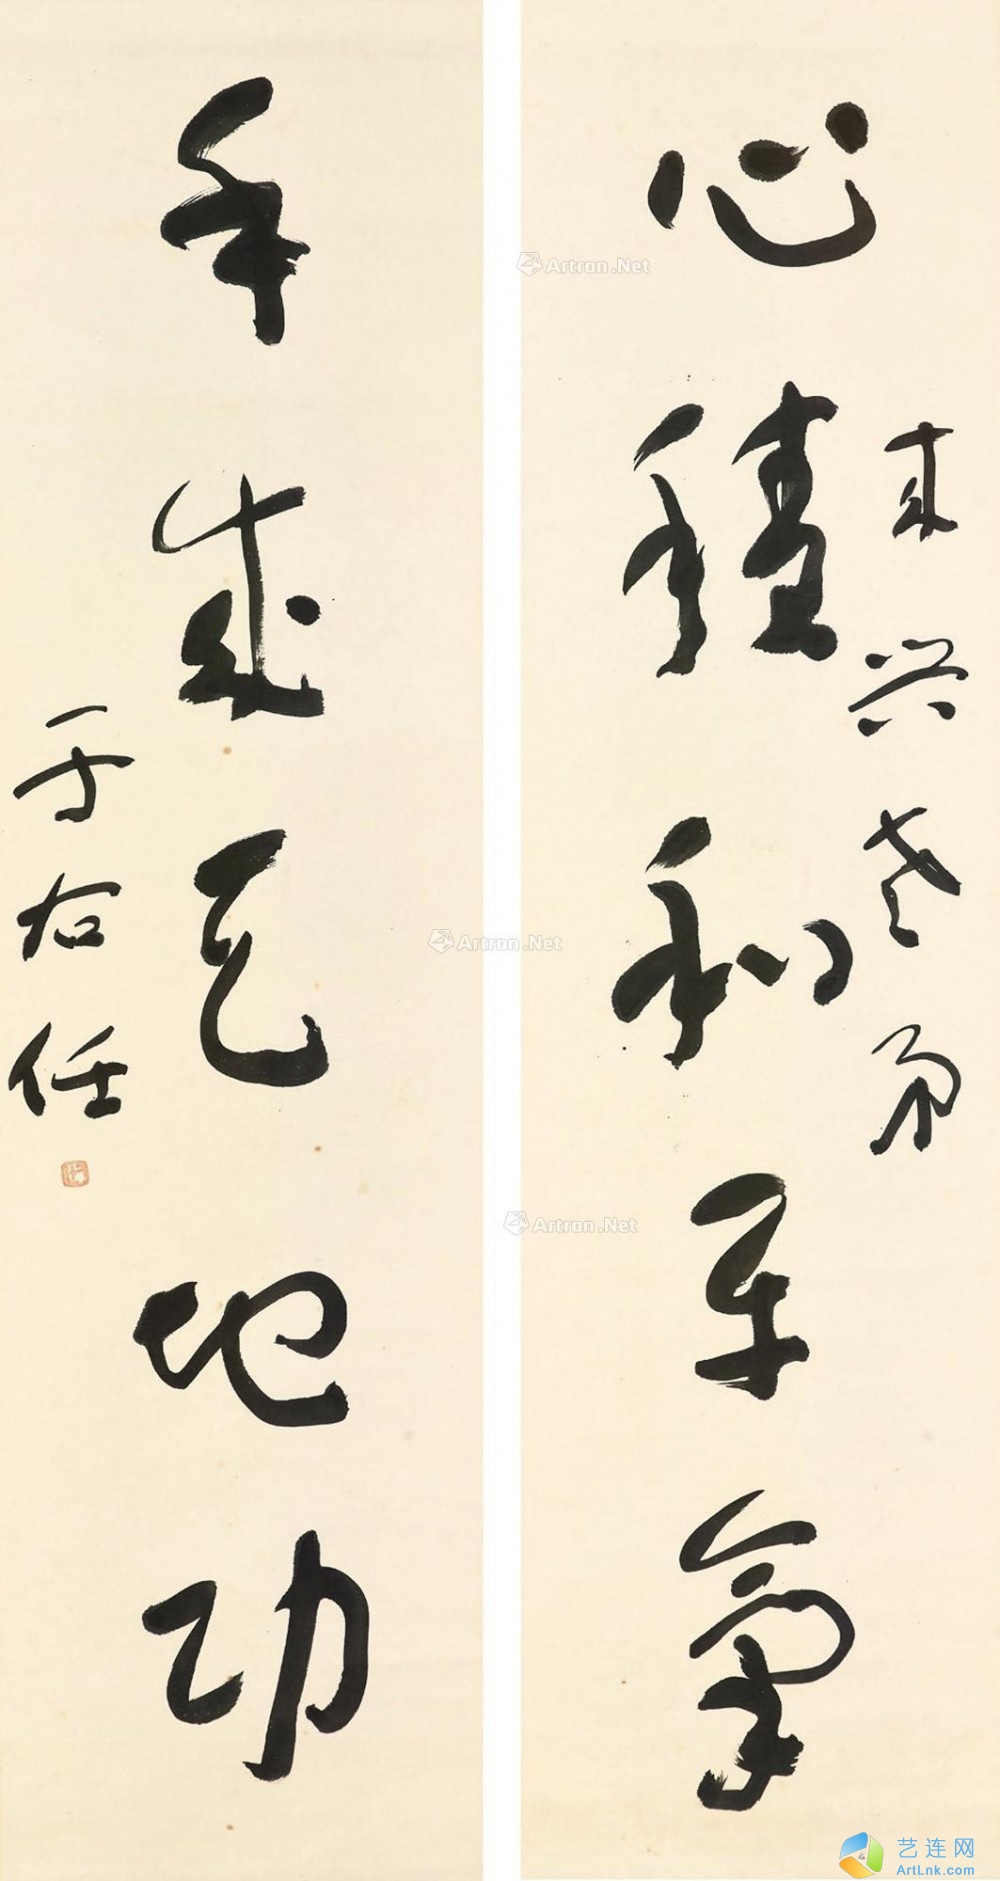 心積和平氣
未興老弟
手成天地功
于右任
Artron.Net
Artron.Net
Artron.Net
艺连网
ArtLnk.com